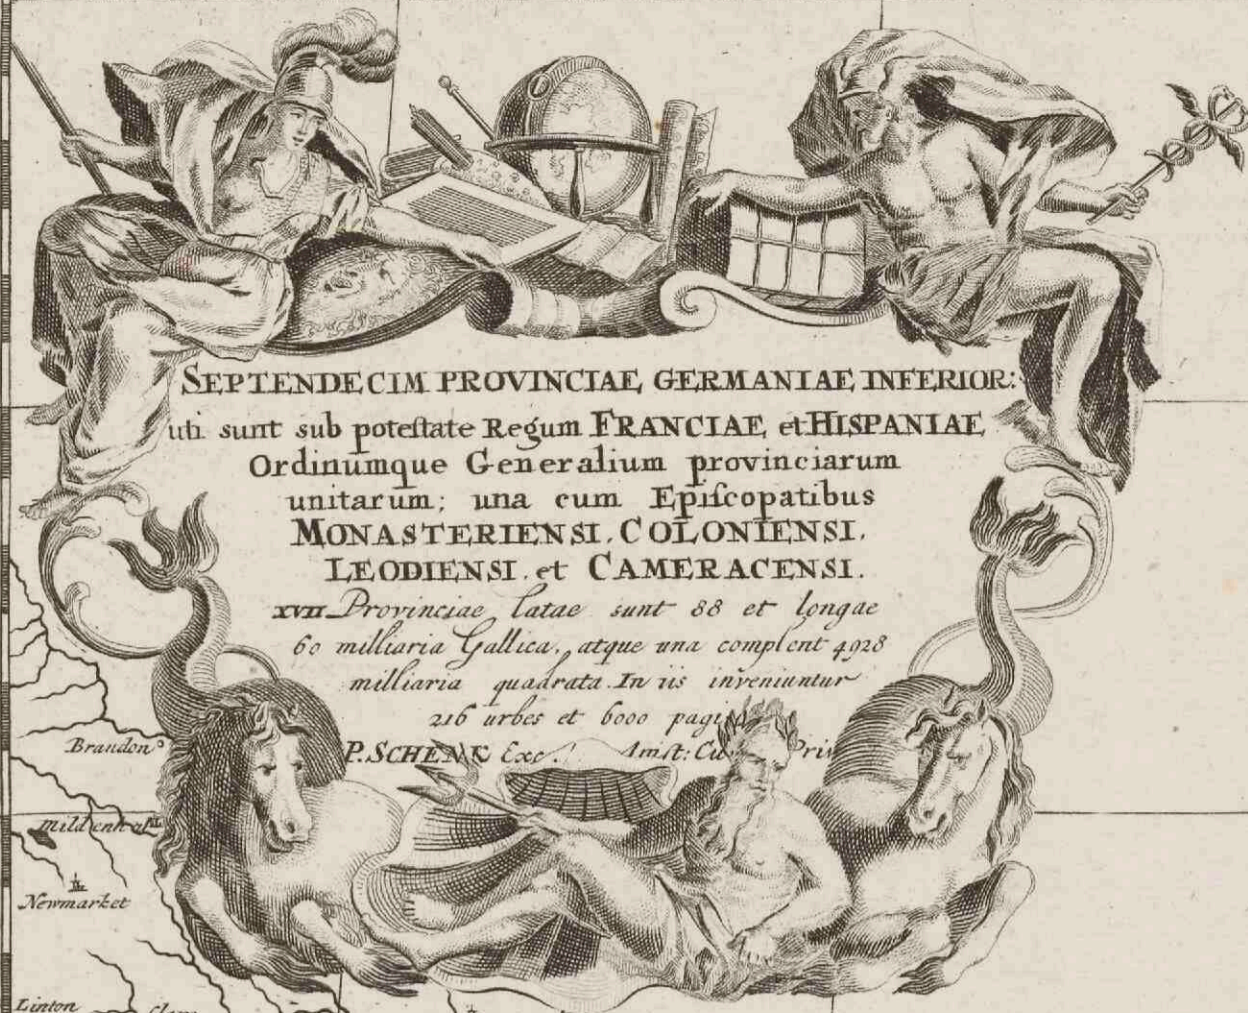 SEPTENDECIM PROVINCIAE GERMANIAE INFERIOR:
uti sunt sub poteſtate Regum FRANCIAE et HISPANIAE
Ordinumque Generalium provinciarum
unitarum; una cum Epiſcopatibus
MONASTERIENSI. COLONIENSI.
LEODIENSI. et CAMERACENSI.
XVII Provinciae latae sunt 88 et longae
60 milliaria Gallica, atque una complent 4928
milliaria quadrata. In iis inveniuntur
216 urbes et 6000 pagi
P. SCHENK Exc. Amſt: Cu Pri
Brandon
Newmarket
Linton